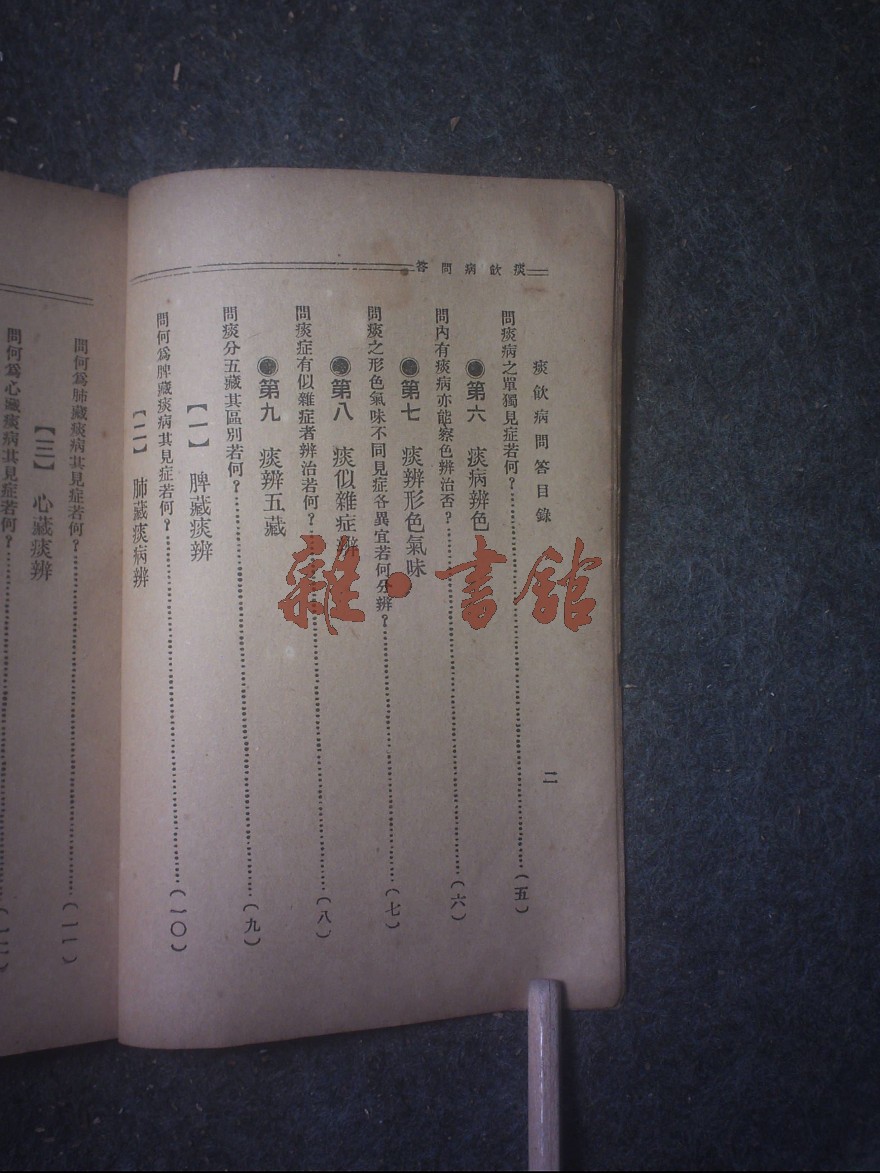 痰飲病問答
痰飲病問答目錄
二
問痰病之單獨見症若何？……（五）
●第六 痰病辨色
問內有痰病亦能察色辨治否？……（六）
●第七 痰辨形色氣味
問痰之形色氣味不同見症各異宜若何分辨？……（七）
●第八 痰似雜症辨
問痰症有似雜症者辨治若何？……（八）
●第九 痰辨五藏
問痰分五藏其區別若何？……（九）
【一】 脾藏痰辨
問何爲脾藏痰病其見症若何？……（一〇）
【二】 肺藏痰病辨
問何爲肺藏痰病其見症若何？……（一一）
【三】 心藏痰辨
問何爲心藏痰病其見症若何？……
雜·書館